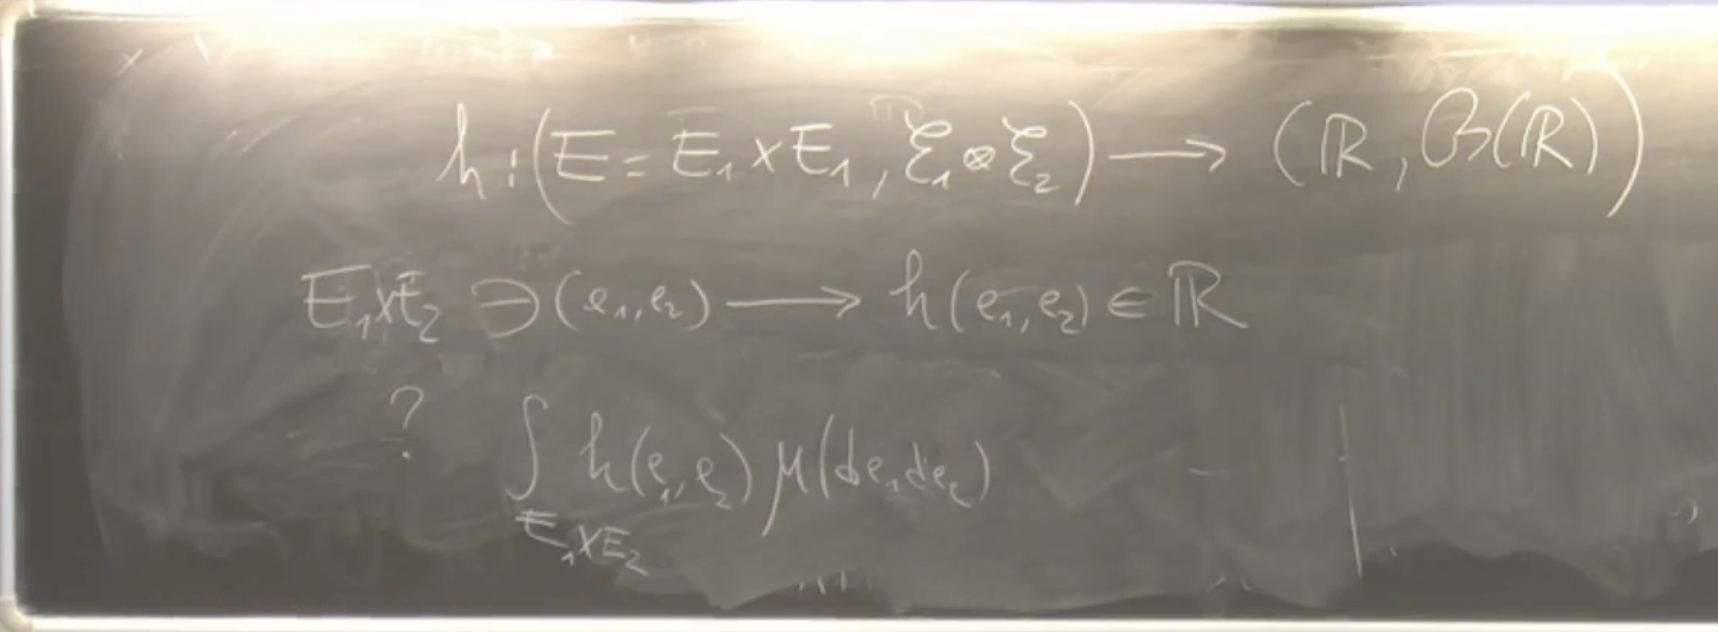 h : (E = E₁ × E₁, ℰ₁ ⊗ ℰ₂) ⟶ (ℝ, ℬ(ℝ))
E₁×E₂ ∋ (e₁, e₂) ⟶ h(e₁, e₂) ∈ ℝ
? ∫_{E₁×E₂} h(e₁, e₂) μ(de₁ de₂)